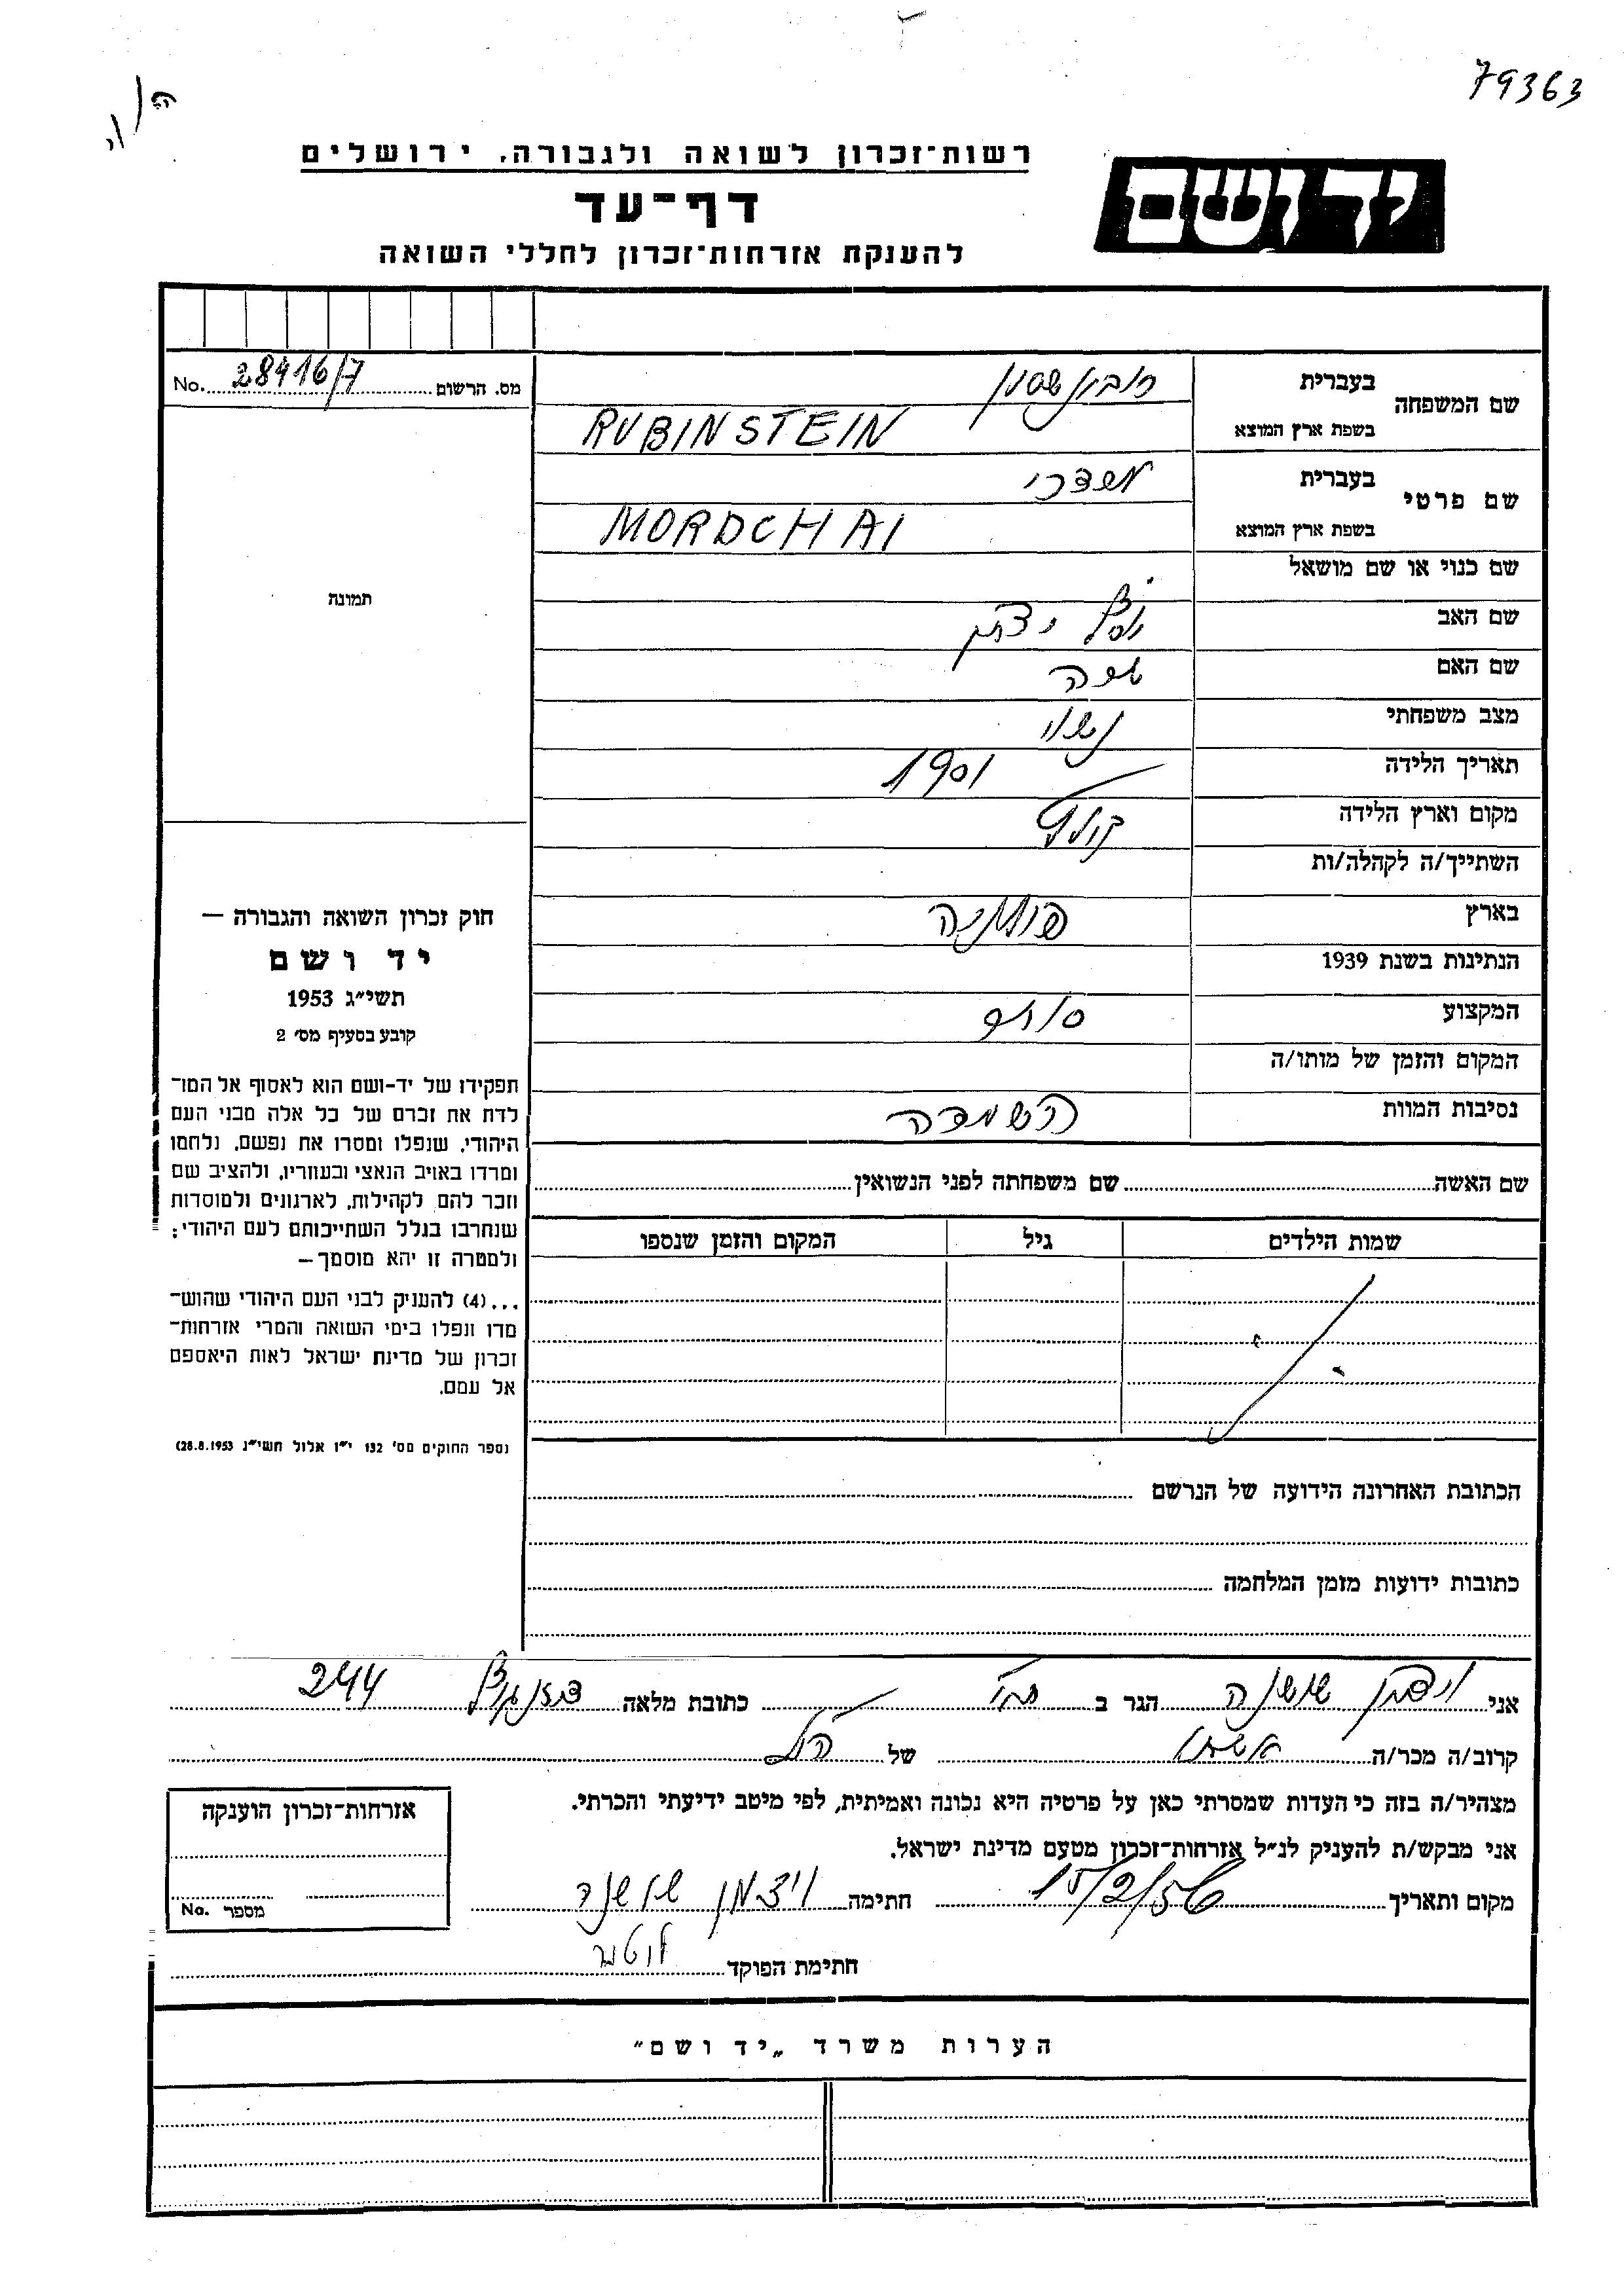 79363
רשות־זכרון לשואה ולגבורה, ירושלים
יד ושם
דף־עד
להענקת אזרחות־זכרון לחללי השואה
מס. הרשום 28416/7 No.
שם המשפחה
בעברית רובינשטיין
בשפת ארץ המוצא RUBINSTEIN
שם פרטי
בעברית מרדכי
בשפת ארץ המוצא MORDCHAI
שם כנוי או שם מושאל
שם האב יצחק
שם האם
מצב משפחתי נשוי
תאריך הלידה 1901
מקום וארץ הלידה
השתייך/ה לקהלה/ות
בארץ
הנתינות בשנת 1939
המקצוע סוחר
המקום והזמן של מותו/ה
נסיבות המוות השמדה
תמונה
חוק זכרון השואה והגבורה —
יד ושם
תשי״ג 1953
קובע בסעיף מס׳ 2
תפקידו של יד-ושם הוא לאסוף אל המו־
לדת את זכרם של כל אלה מבני העם
היהודי, שנפלו ומסרו את נפשם, נלחמו
ומרדו באויב הנאצי ובעוזריו, ולהציב שם
וזכר להם לקהילות, לארגונים ולמוסדות
שנחרבו בגלל השתייכותם לעם היהודי;
ולמטרה זו יהא מוסמך —
...(4) להעניק לבני העם היהודי שהוש־
מדו ונפלו בימי השואה והמרי אזרחות־
זכרון של מדינת ישראל לאות היאספם
אל עמם.
(ספר החוקים מס׳ 132 י״ז אלול תשי״ג 28.8.1953)
שם האשה שם משפחתה לפני הנשואין
שמות הילדים גיל המקום והזמן שנספו
הכתובת האחרונה הידועה של הנרשם
כתובות ידועות מזמן המלחמה
אני ויצמן שושנה הגר ב כתובת מלאה 244
קרוב/ה מכר/ה של
מצהיר/ה בזה כי העדות שמסרתי כאן על פרטיה היא נכונה ואמיתית, לפי מיטב ידיעתי והכרתי.
אני מבקש/ת להעניק לנ״ל אזרחות־זכרון מטעם מדינת ישראל.
מקום ותאריך 15/2/56 חתימה ויצמן שושנה
חתימת הפוקד
אזרחות־זכרון הוענקה
מספר No.
הערות משרד „יד ושם״